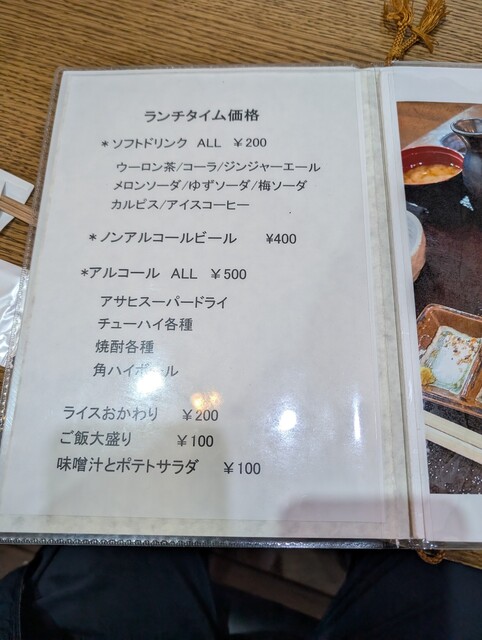 ランチタイム価格
*ソフトドリンク ALL ￥200
ウーロン茶/コーラ/ジンジャーエール
メロンソーダ/ゆずソーダ/梅ソーダ
カルピス/アイスコーヒー
*ノンアルコールビール ¥400
*アルコール ALL ￥500
アサヒスーパードライ
チューハイ各種
焼酎各種
角ハイボール
ライスおかわり ￥200
ご飯大盛り ￥100
味噌汁とポテトサラダ ￥100